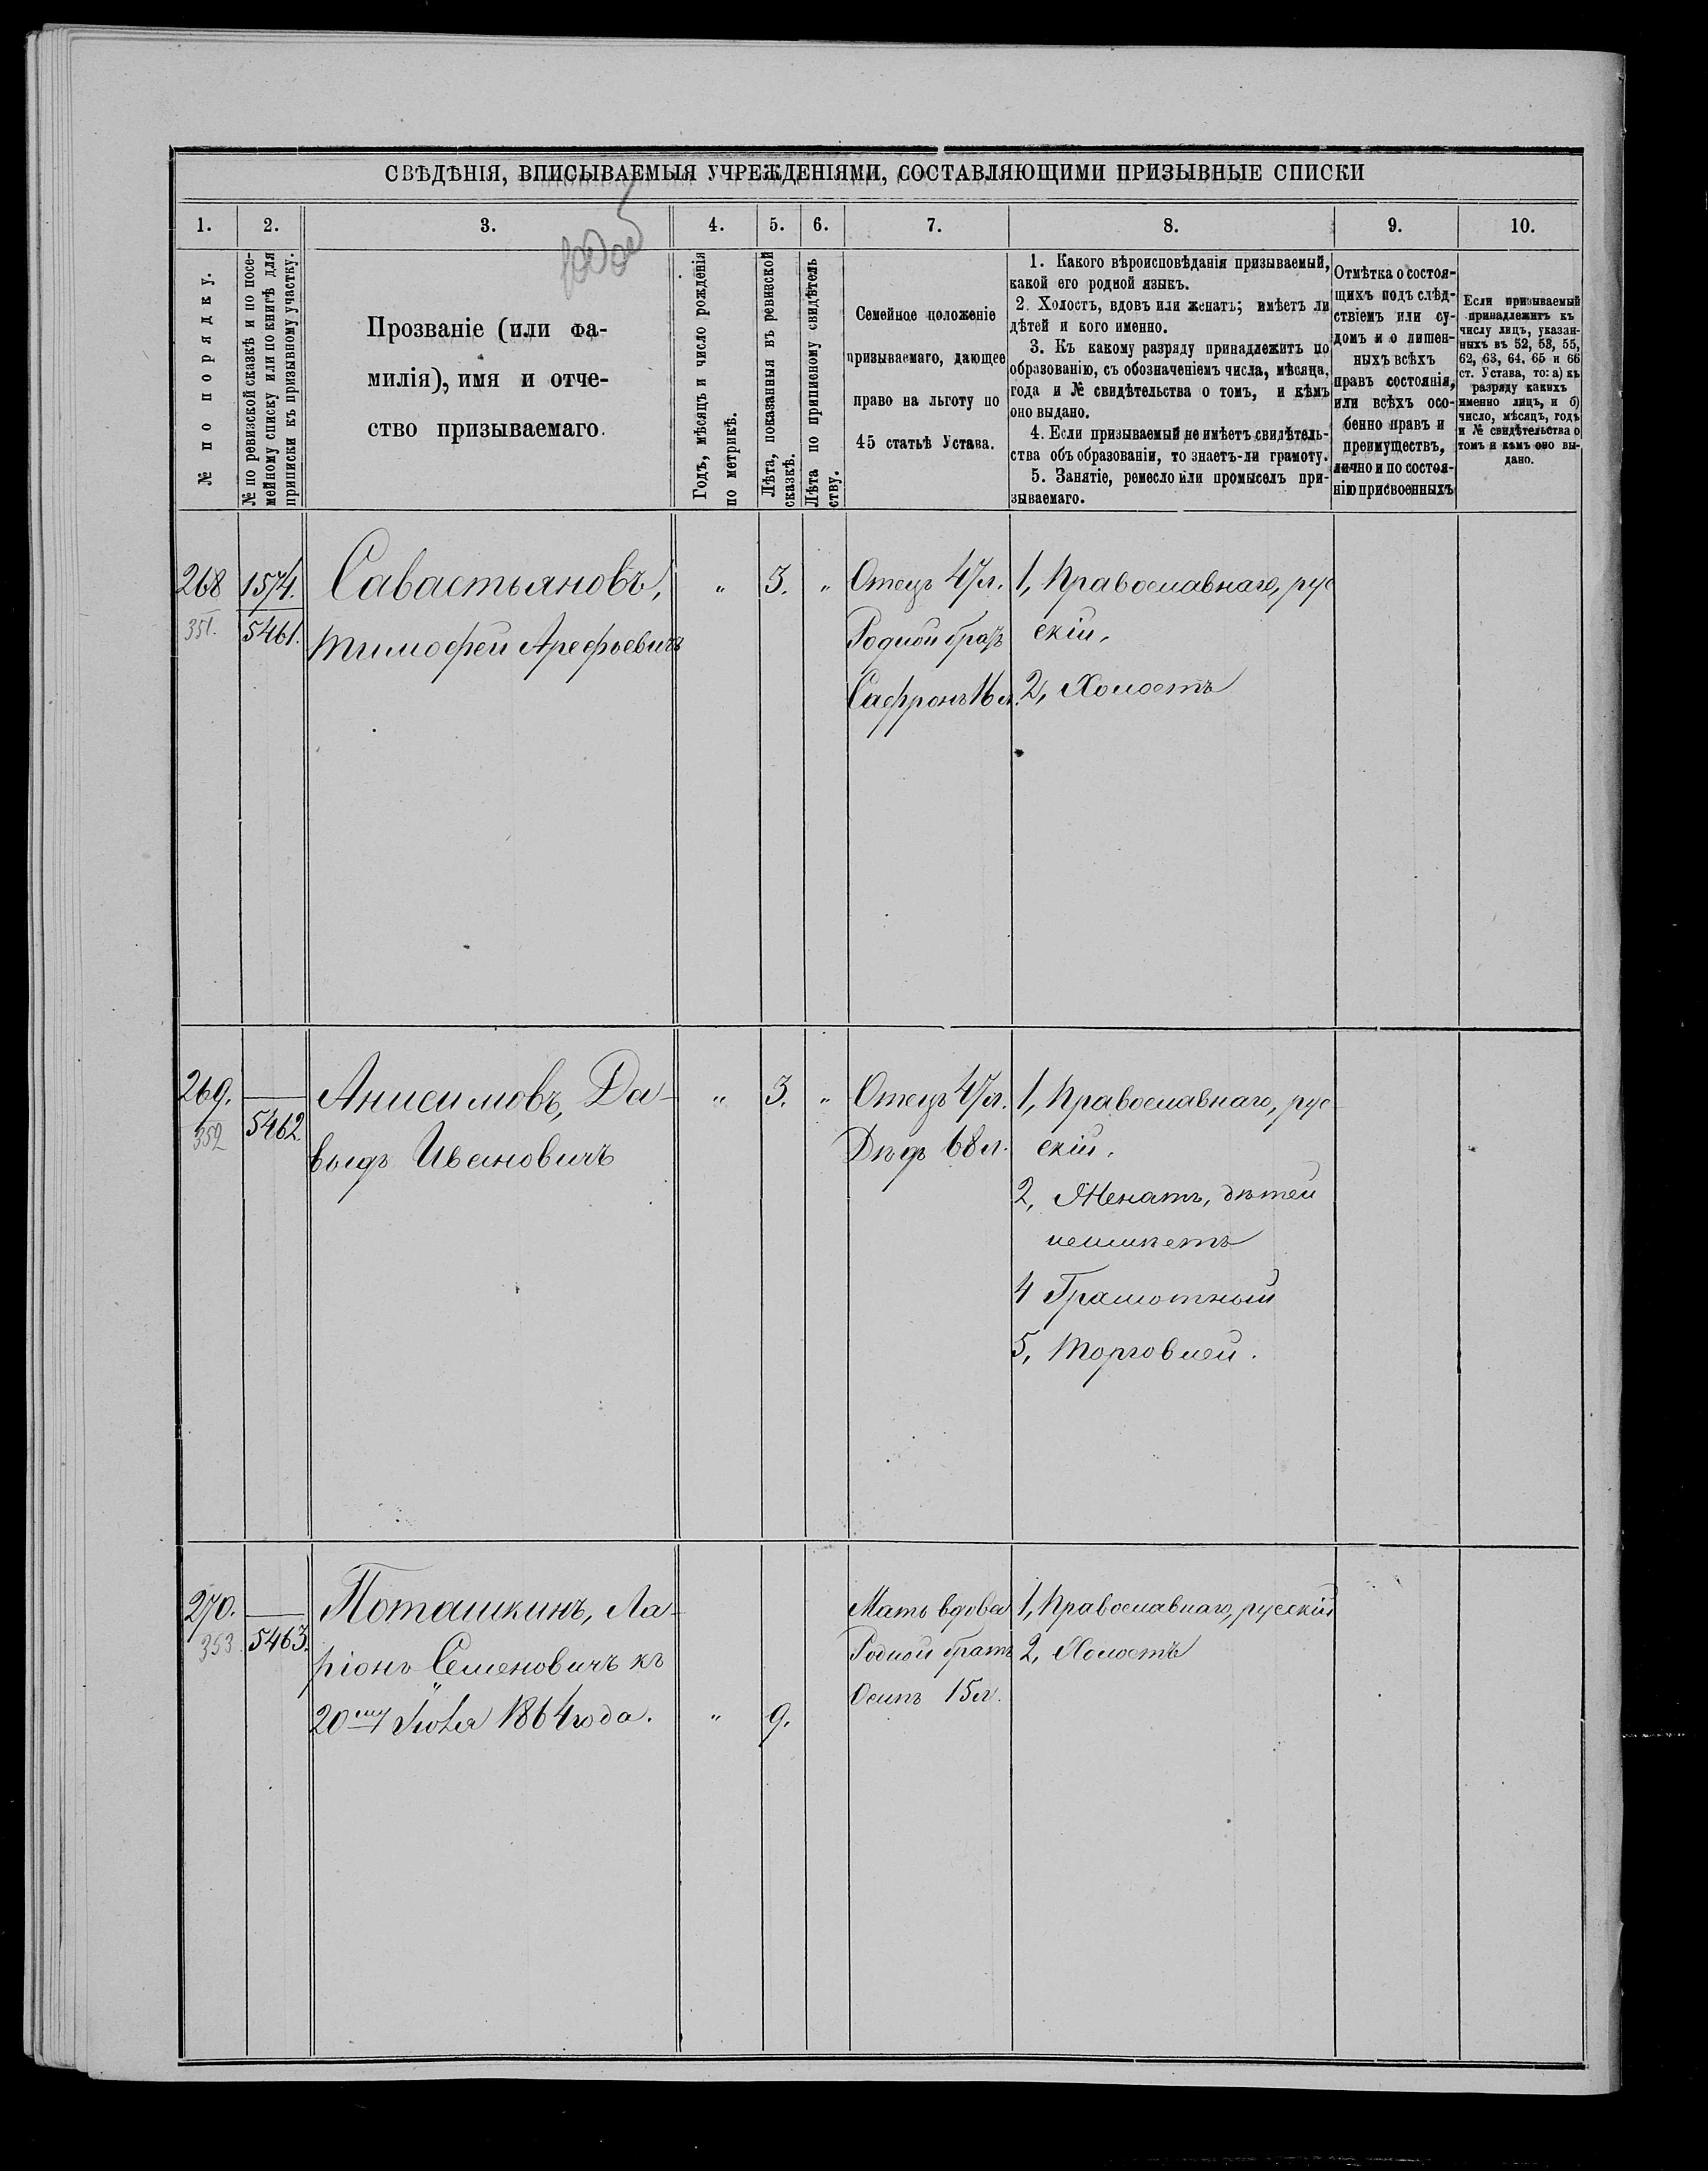 СВѢДѢНІЯ, ВПИСЫВАЕМЫЯ УЧРЕЖДЕНІЯМИ, СОСТАВЛЯЮЩИМИ ПРИЗЫВНЫЕ СПИСКИ
1. 2. 3. 4. 5. 6. 7. 8. 9. 10.
№ по порядку.
№ по ревизской сказкѣ и по посе-
мейному списку или по книгѣ для
приписки къ призывному участку.
Прозваніе (или фа-
милія), имя и отче-
ство призываемаго.
Годъ, мѣсяцъ и число рожденія
по метрикѣ.
Лѣта, показанныя въ ревизской
сказкѣ.
Лѣта по приписному свидѣтель
ству.
Семейное положеніе
призываемаго, дающее
право на льготу по
45 статьѣ Устава.
1. Какого вѣроисповѣданія призываемый,
какой его родной языкъ.
2. Холостъ, вдовъ или женатъ; имѣетъ ли
дѣтей и кого именно.
3. Къ какому разряду принадлежитъ по
образованію, съ обозначеніемъ числа, мѣсяца,
года и № свидѣтельства о томъ, и кѣмъ
оно выдано.
4. Если призываемый не имѣетъ свидѣтель-
ства объ образованіи, то знаетъ-ли грамоту.
5. Занятіе, ремесло или промыселъ при-
зываемаго.
Отмѣтка о состоя-
щихъ подъ слѣд-
ствіемъ или су-
домъ и о лишен-
ныхъ всѣхъ
правъ состоянія,
или всѣхъ осо-
бенно правъ и
преимуществъ,
лично и по состоя-
нію присвоенныхъ
Если призываемый
принадлежитъ къ
числу лицъ, указан-
ныхъ въ 52, 53, 55,
62, 63, 64. 65 и 66
ст. Устава, то: а) къ
разряду какихъ
именно лицъ, и б)
число, мѣсяцъ, годъ
и № свидѣтельства о
томъ и кѣмъ оно вы-
дано.
268
351.
1574.
5461.
Савастьяновъ,
Тимофей Арефьевичъ
" 3. "
Отецъ 47 л.
Родной братъ
Сафронъ 16 л.
1, Православнаго, рус
скій.
2, Холостъ
269.
352
5462.
Анисимовъ, Да-
выдъ Ивановичъ
" 3. "
Отецъ 45 л.
Дѣдъ 68 л.
1, Православнаго, рус-
скій.
2, Женатъ, дѣтей
неимѣетъ
4 Грамотный
5, Торговлей.
270.
353.
5463.
Поташкинъ, Ла-
ріонъ Семеновичъ къ
20му Іюля 1864 года.
" 9.
Мать вдова
Родной братъ
Осипъ 15 л.
1, Православнаго, русскій
2, Холостъ